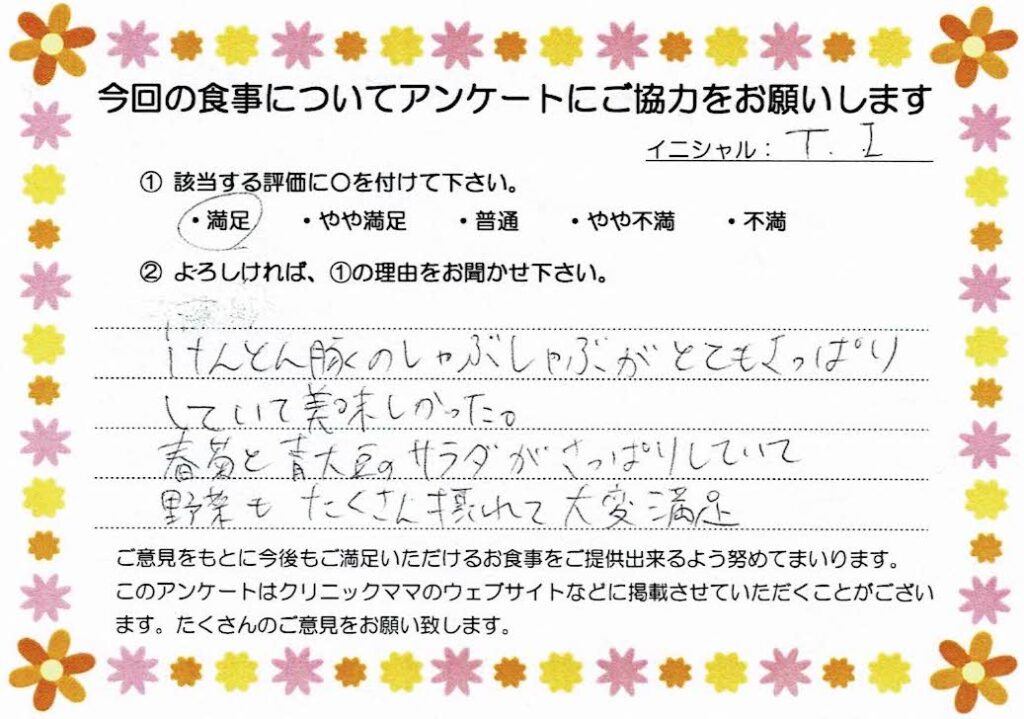 今回の食事についてアンケートにご協力をお願いします
イニシャル： T. I
① 該当する評価に〇を付けて下さい。
・満足 ・やや満足 ・普通 ・やや不満 ・不満
② よろしければ、①の理由をお聞かせ下さい。
けんとん豚のしゃぶしゃぶがとてもさっぱり
していて美味しかった。
春菊と青大豆のサラダがさっぱりしていて
野菜もたくさん摂れて大変満足
ご意見をもとに今後もご満足いただけるお食事をご提供出来るよう努めてまいります。
このアンケートはクリニックママのウェブサイトなどに掲載させていただくことがござい
ます。たくさんのご意見をお願い致します。